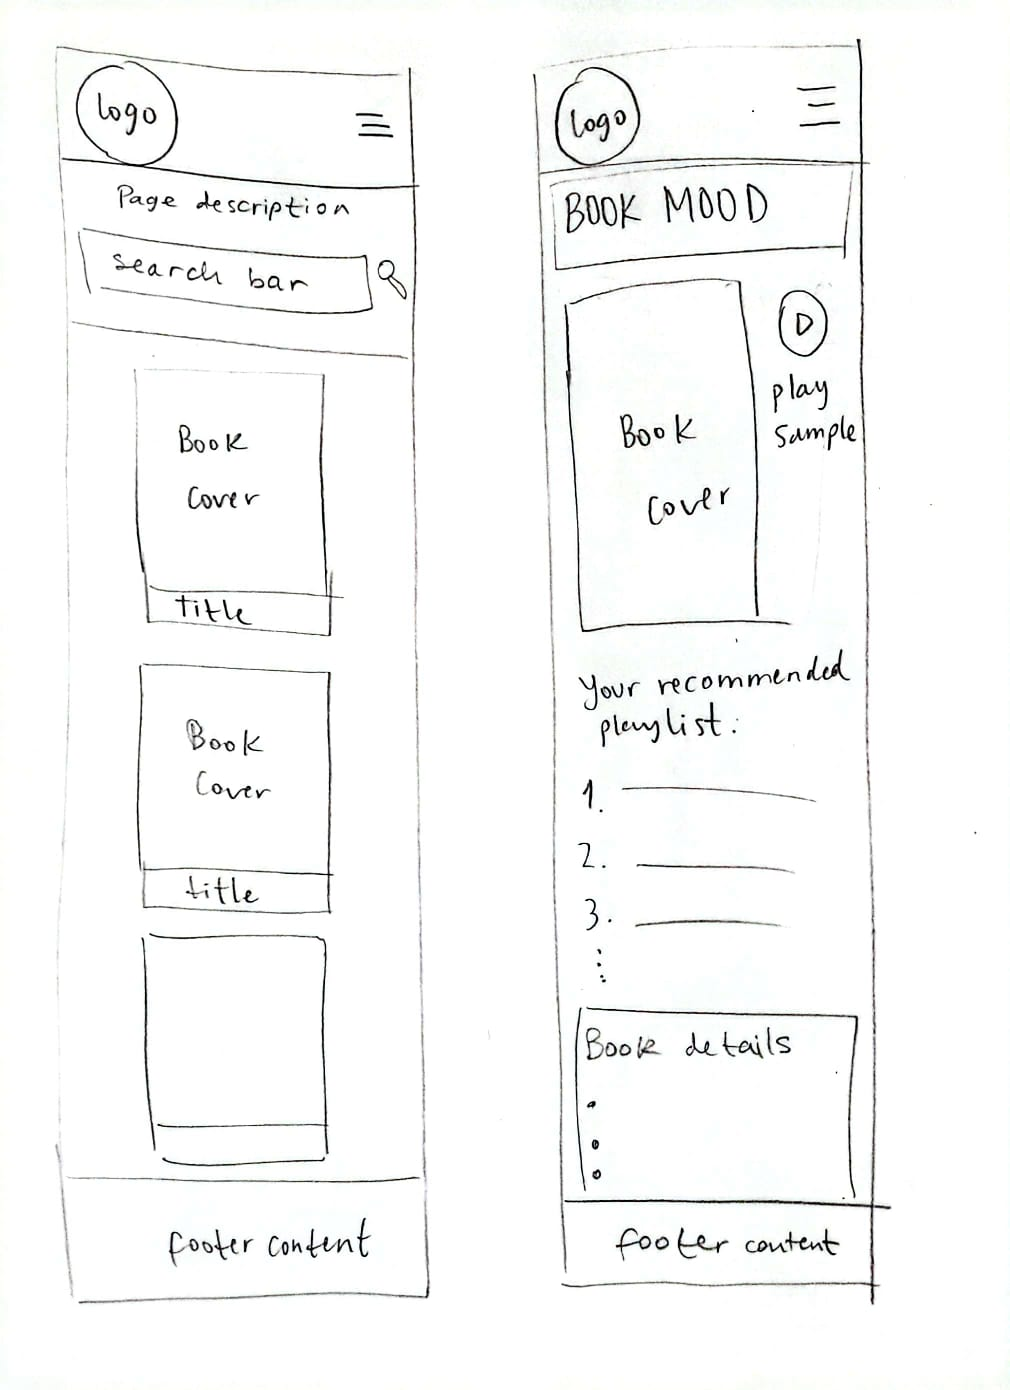 logo
Page description
search bar
Book
Cover
title
Book
Cover
title
footer content
logo
BOOK MOOD
play
sample
Book
Cover
Your recommended
playlist:
1.
2.
3.
Book details
footer content